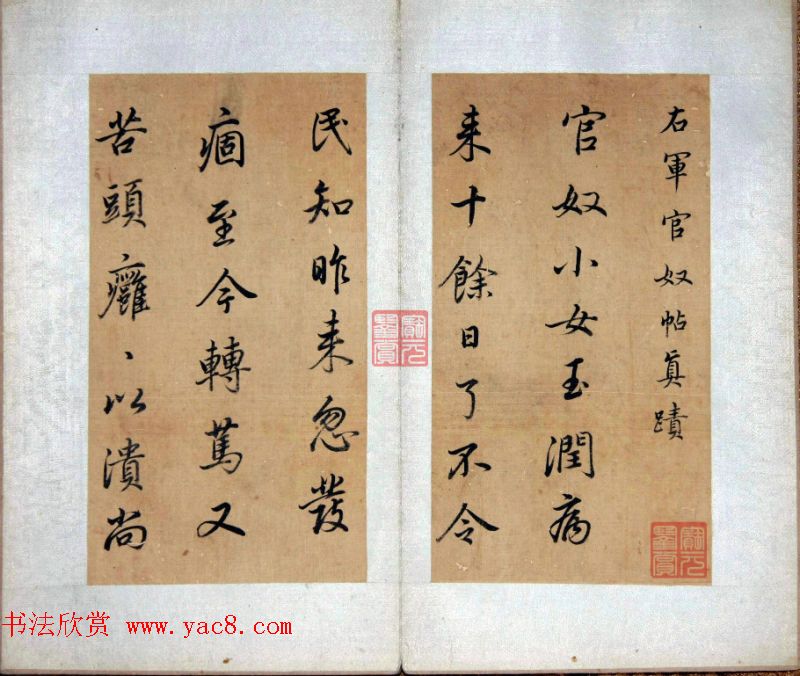 右軍官奴帖真蹟
官奴小女玉潤病
来十餘日了不令
民知昨来忽發
痼至今轉篤又
苦頭癰、以潰尚
书法欣赏 www.yac8.com